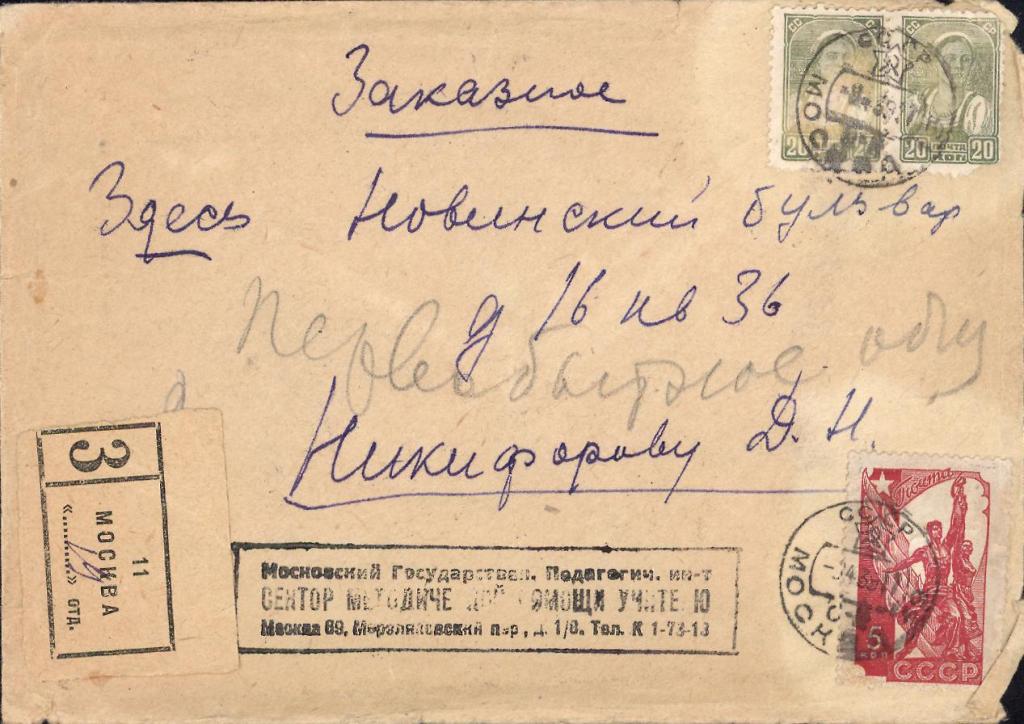 Заказное
Здесь Новинский бульвар
д 16 кв 36
Первобытное общ
Никифорову Д. Н.
СССР
МОСКВА
20
20
ПОЧТА
КОП
З
МОСКВА
11
«......» отд.
Московский Государствен. Педагогич. ин-т
СЕКТОР МЕТОДИЧЕ ПОМОЩИ УЧИТЕЛЮ
Москва 69, Мерзляковский пер., д. 1/8. Тел. К 1-73-13
почта
СССР
МОСКВА
5
КОП
СССР